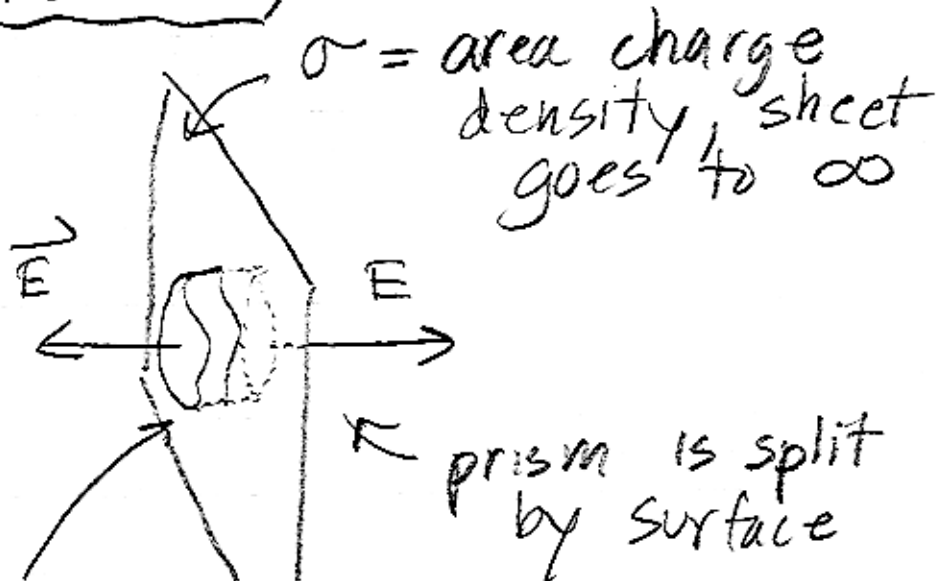 σ = area charge
density, sheet
goes to ∞
E⃗
E
prism is split
by surface